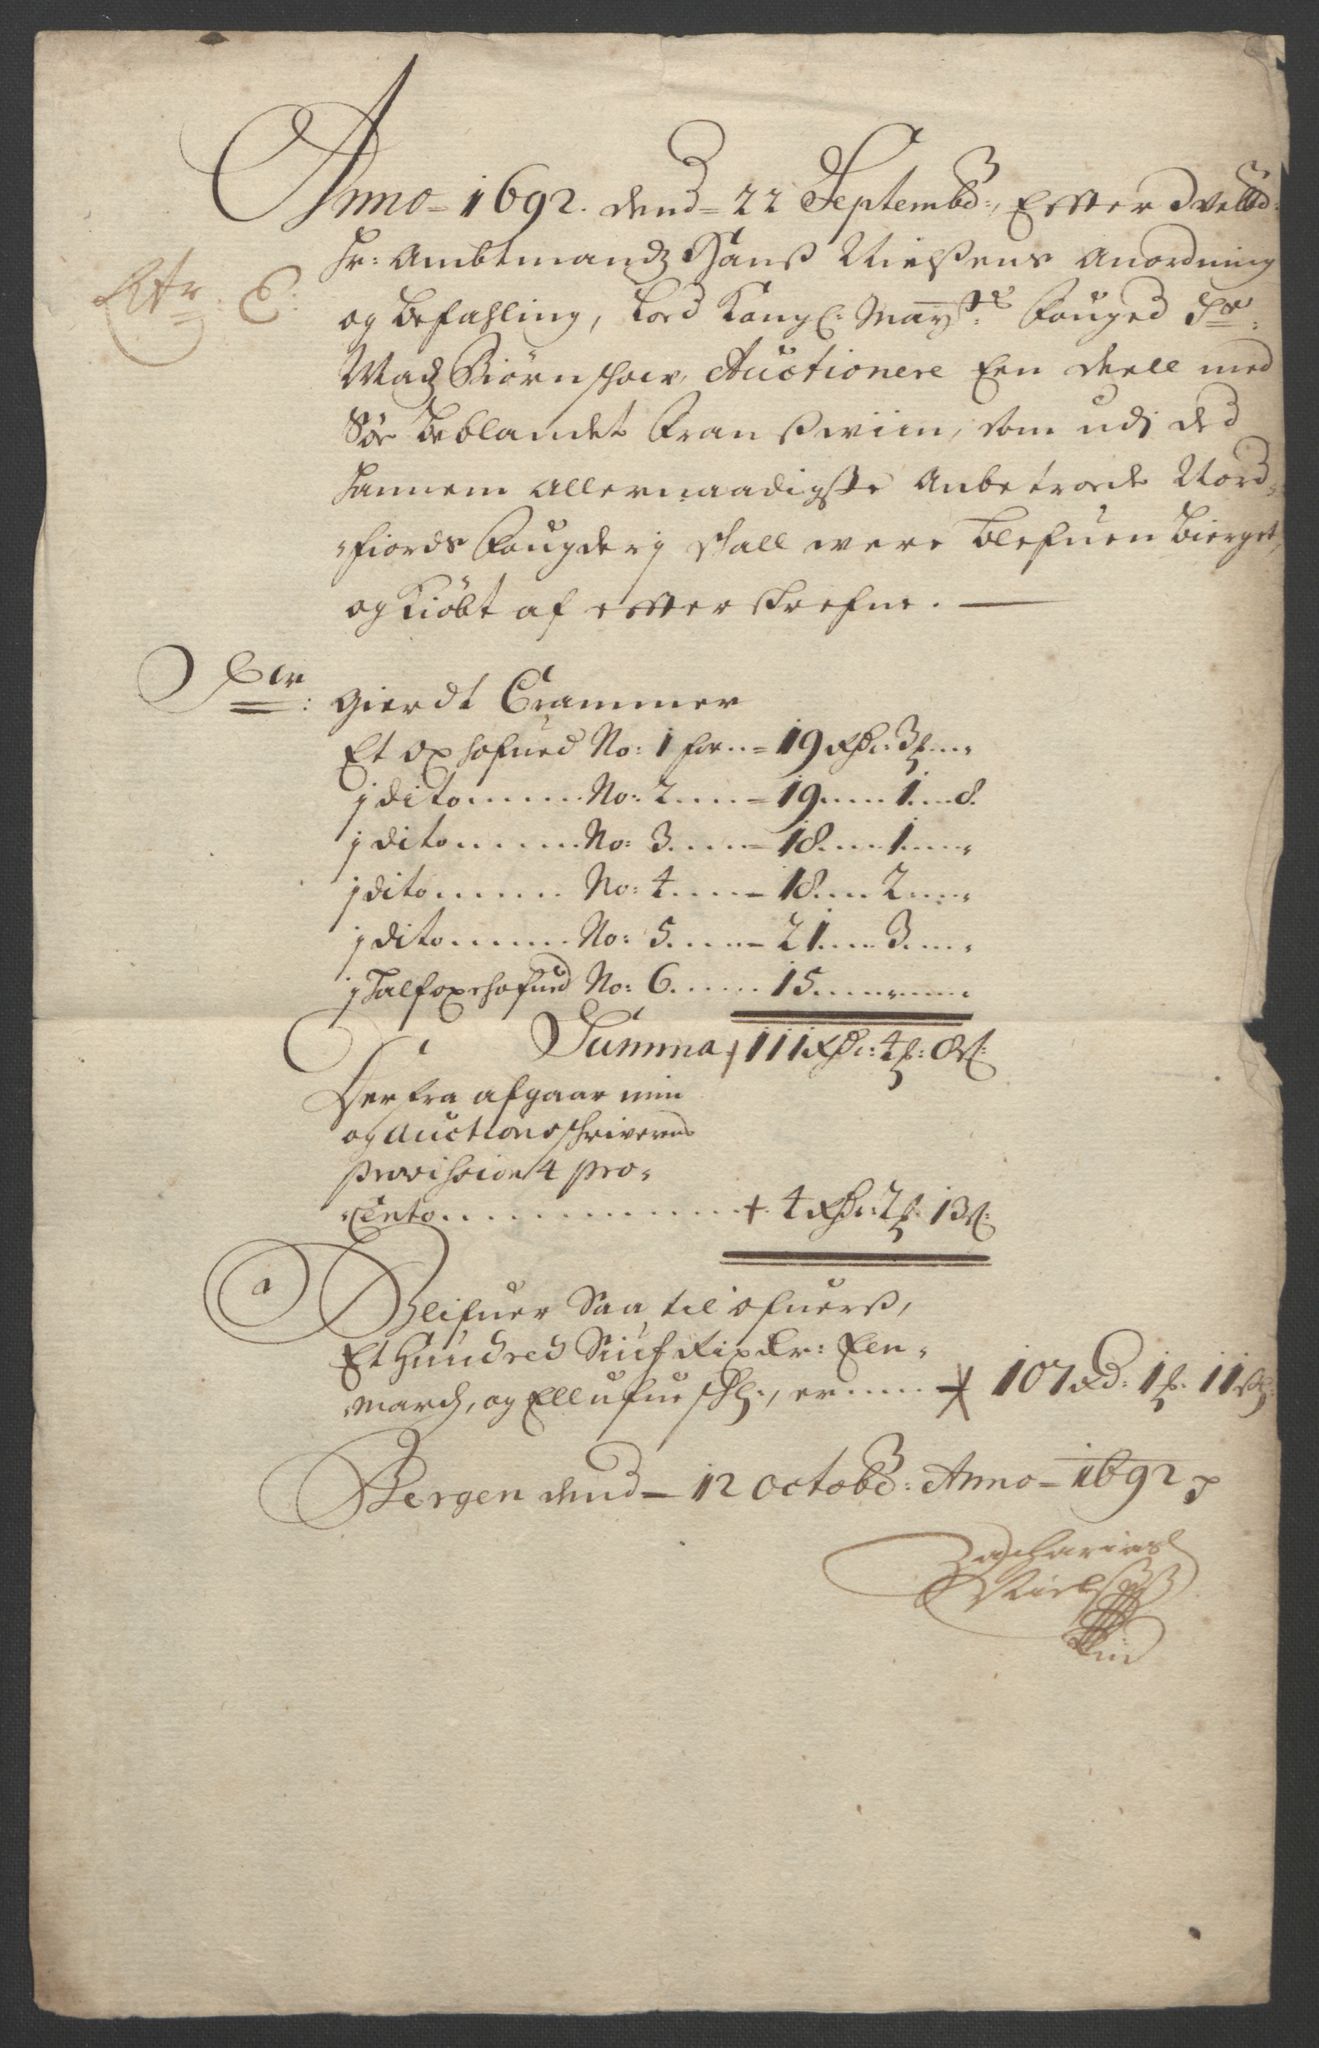 Anno 1692. dend 22 Septembr:, Effter Velbr:
Hr: Ambtmand Hans Nielsens Anordning
Litr. E:
og befahling, Lod Kongl: Mayts: Fouged Sr:
Mads Biørnsøen, Auctionere Een deell med
Søe beblandet Fransviin, som udi ded
hannem allernaadigste Anbetroede Nord-
fiords Fougderj skall were blefuen bierget,
og kiøbt af effterskrefne.
Sr: Gierdt Crammer
Et oxhofued No: 1 for 19 Rdr: 3 ...
j dito No: 2 19 1 8
j dito No: 3 18 1
j dito No: 4 18 2
j dito No: 5 21 3
j half oxehofued No: 6 15
Summa 111 Rdr: 4 : 8 s:
Derfra afgaar min
og Auctionsskriverens
provission 4 pro-
Cento 4 Rdr: 2 13 s:
Blifuer Saa til ofuers,
Et hundred Siuf Rixdr: Een
March, og Ellufue sk:, er 107 Rd: 1 : 11 s:
Bergen dend 12 octobr: Anno 1692
Zacharias
Nielss